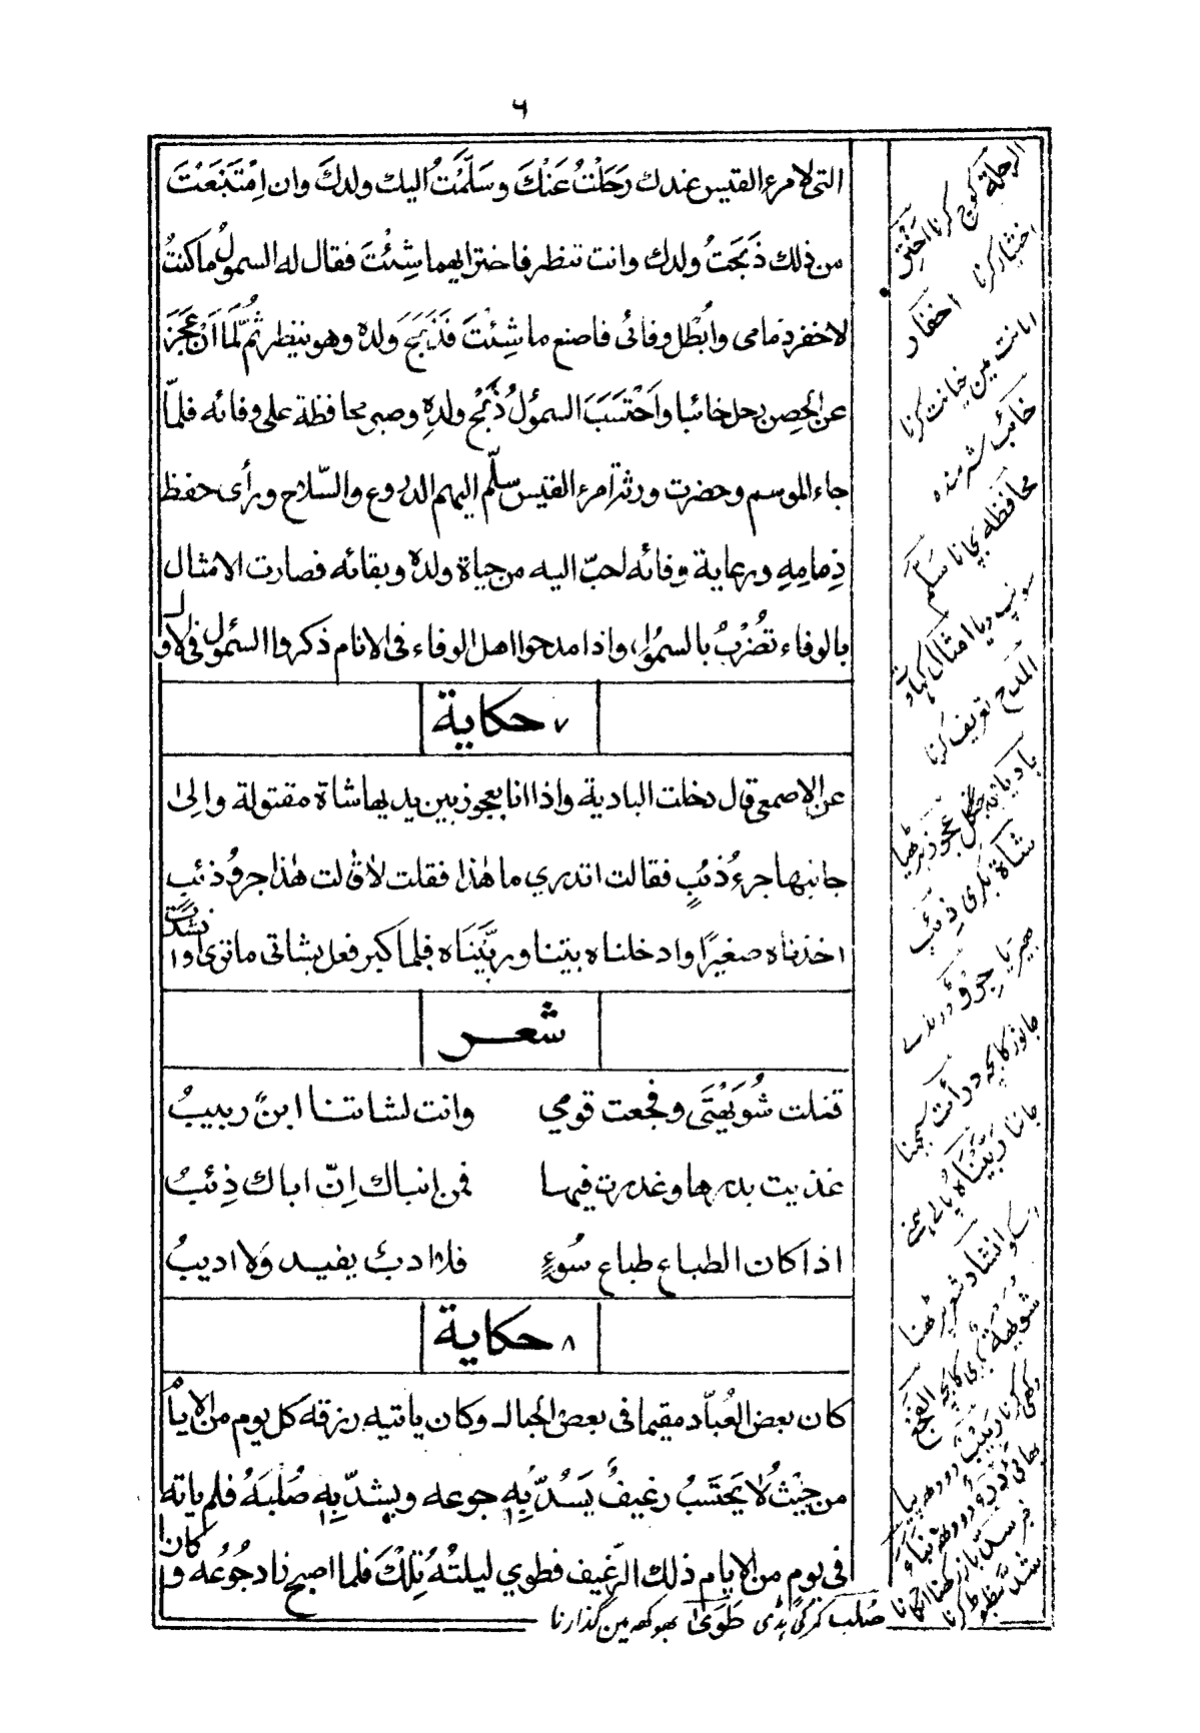 ٦
التی لامرء القیس عندك رَحَلْتُ عَنْكَ وسَلَّمْتُ الیك ولدك وان اِمْتَنَعْتَ
من ذلك ذَبَحتُ ولدك وانت تنظر فاختر ایهما شِئْتَ فقال له السمولُ ماكنتُ
لاخفر ذمامی وابُطْل وفائی فاصنع ما شِئْتَ فَذَبَحَ ولده وهو ینظر ثُمَّ لَمَّا اَنْ عَجَزَ
عن الحصن رحل خائبا واَحْتَسَبَ السمؤلُ ذَبْحَ ولدِهِ وصبر محافظة علی وفائه فلمّا
جاء الموسم وحضرت ورثة امرء القیس سلّم الیهم الدروع والسّلاح ورأی حفظ
ذِمامِهِ ورعایة وفائه احبّ الیه من حیاة ولده وبقائه فصارت الامثال
بالوفاء تُضْرَبُ بالسمؤل، واذا مدحوا اهل الوفاء فی الانام ذكروا السمول فی الاول
٧ حكایة
عن الاصمعی قال دخلت البادیة واذا انا بعجوز بین یدیها شاة مقتولة والیٰ
جانبها جرءُ ذئبٍ فقالت اتدری ما هٰذا فقلت لا قالت هٰذا جروُ ذئبٍ
اخذناه صغیرًا وادخلناه بیتنا وربَّیْنَاه فلما كبر فعل بشاتی ما تری وانشدت
شعر
قتلت شُوَیْهَتَی وفجعت قومی وانت لشاتنا ابنٌ ربیبُ
غذیت بدرها وغدرت فیها فمن انباك اِنّ اباك ذِئبُ
اذا كان الطباع طباع سُوءٍ فلا ادبٌ یفید وَلا ادیبُ
٨ حكایة
كان بعض العُبّاد مقیما فی بعض الجبال وكان یاتیه رزقه كل یوم من الایام
من حَیْثُ لا یَحْتَسِبُ رغیفٌ یَسُدُّ بِهِ جوعه ویشدّ بِهِ صُلْبَهُ فلم یاته
فی یوم من الایام ذلك الرّغیف فطوی لیلتُهُ تِلْكَ فلما اصبح زاد جُوْعُه وكان
الرحلة كوچ كرنا اخْتَرْ
اختیار كرنا اخفار
امانت مین خیانت كرنا
خائب شرمنده
محافظه بچانا سَلَّمَ
سونپ دیا امثال كہاوت
المدح تعریف كرنا
بادیه جنگل عجوز بڑهیا
شاة بكری ذِئب
بھیڑیا جرو درندے
جانور كا بچه درأت سمجھنا
جاننا رَبَّیْنَاه پالا ہمنے
اسكو انشاد شعر پڑهنا
شویهة بكری كا بچه الفجع
صُلب كمر كی ہڈی طَوَیٰ بھوكھ مین گذارنا